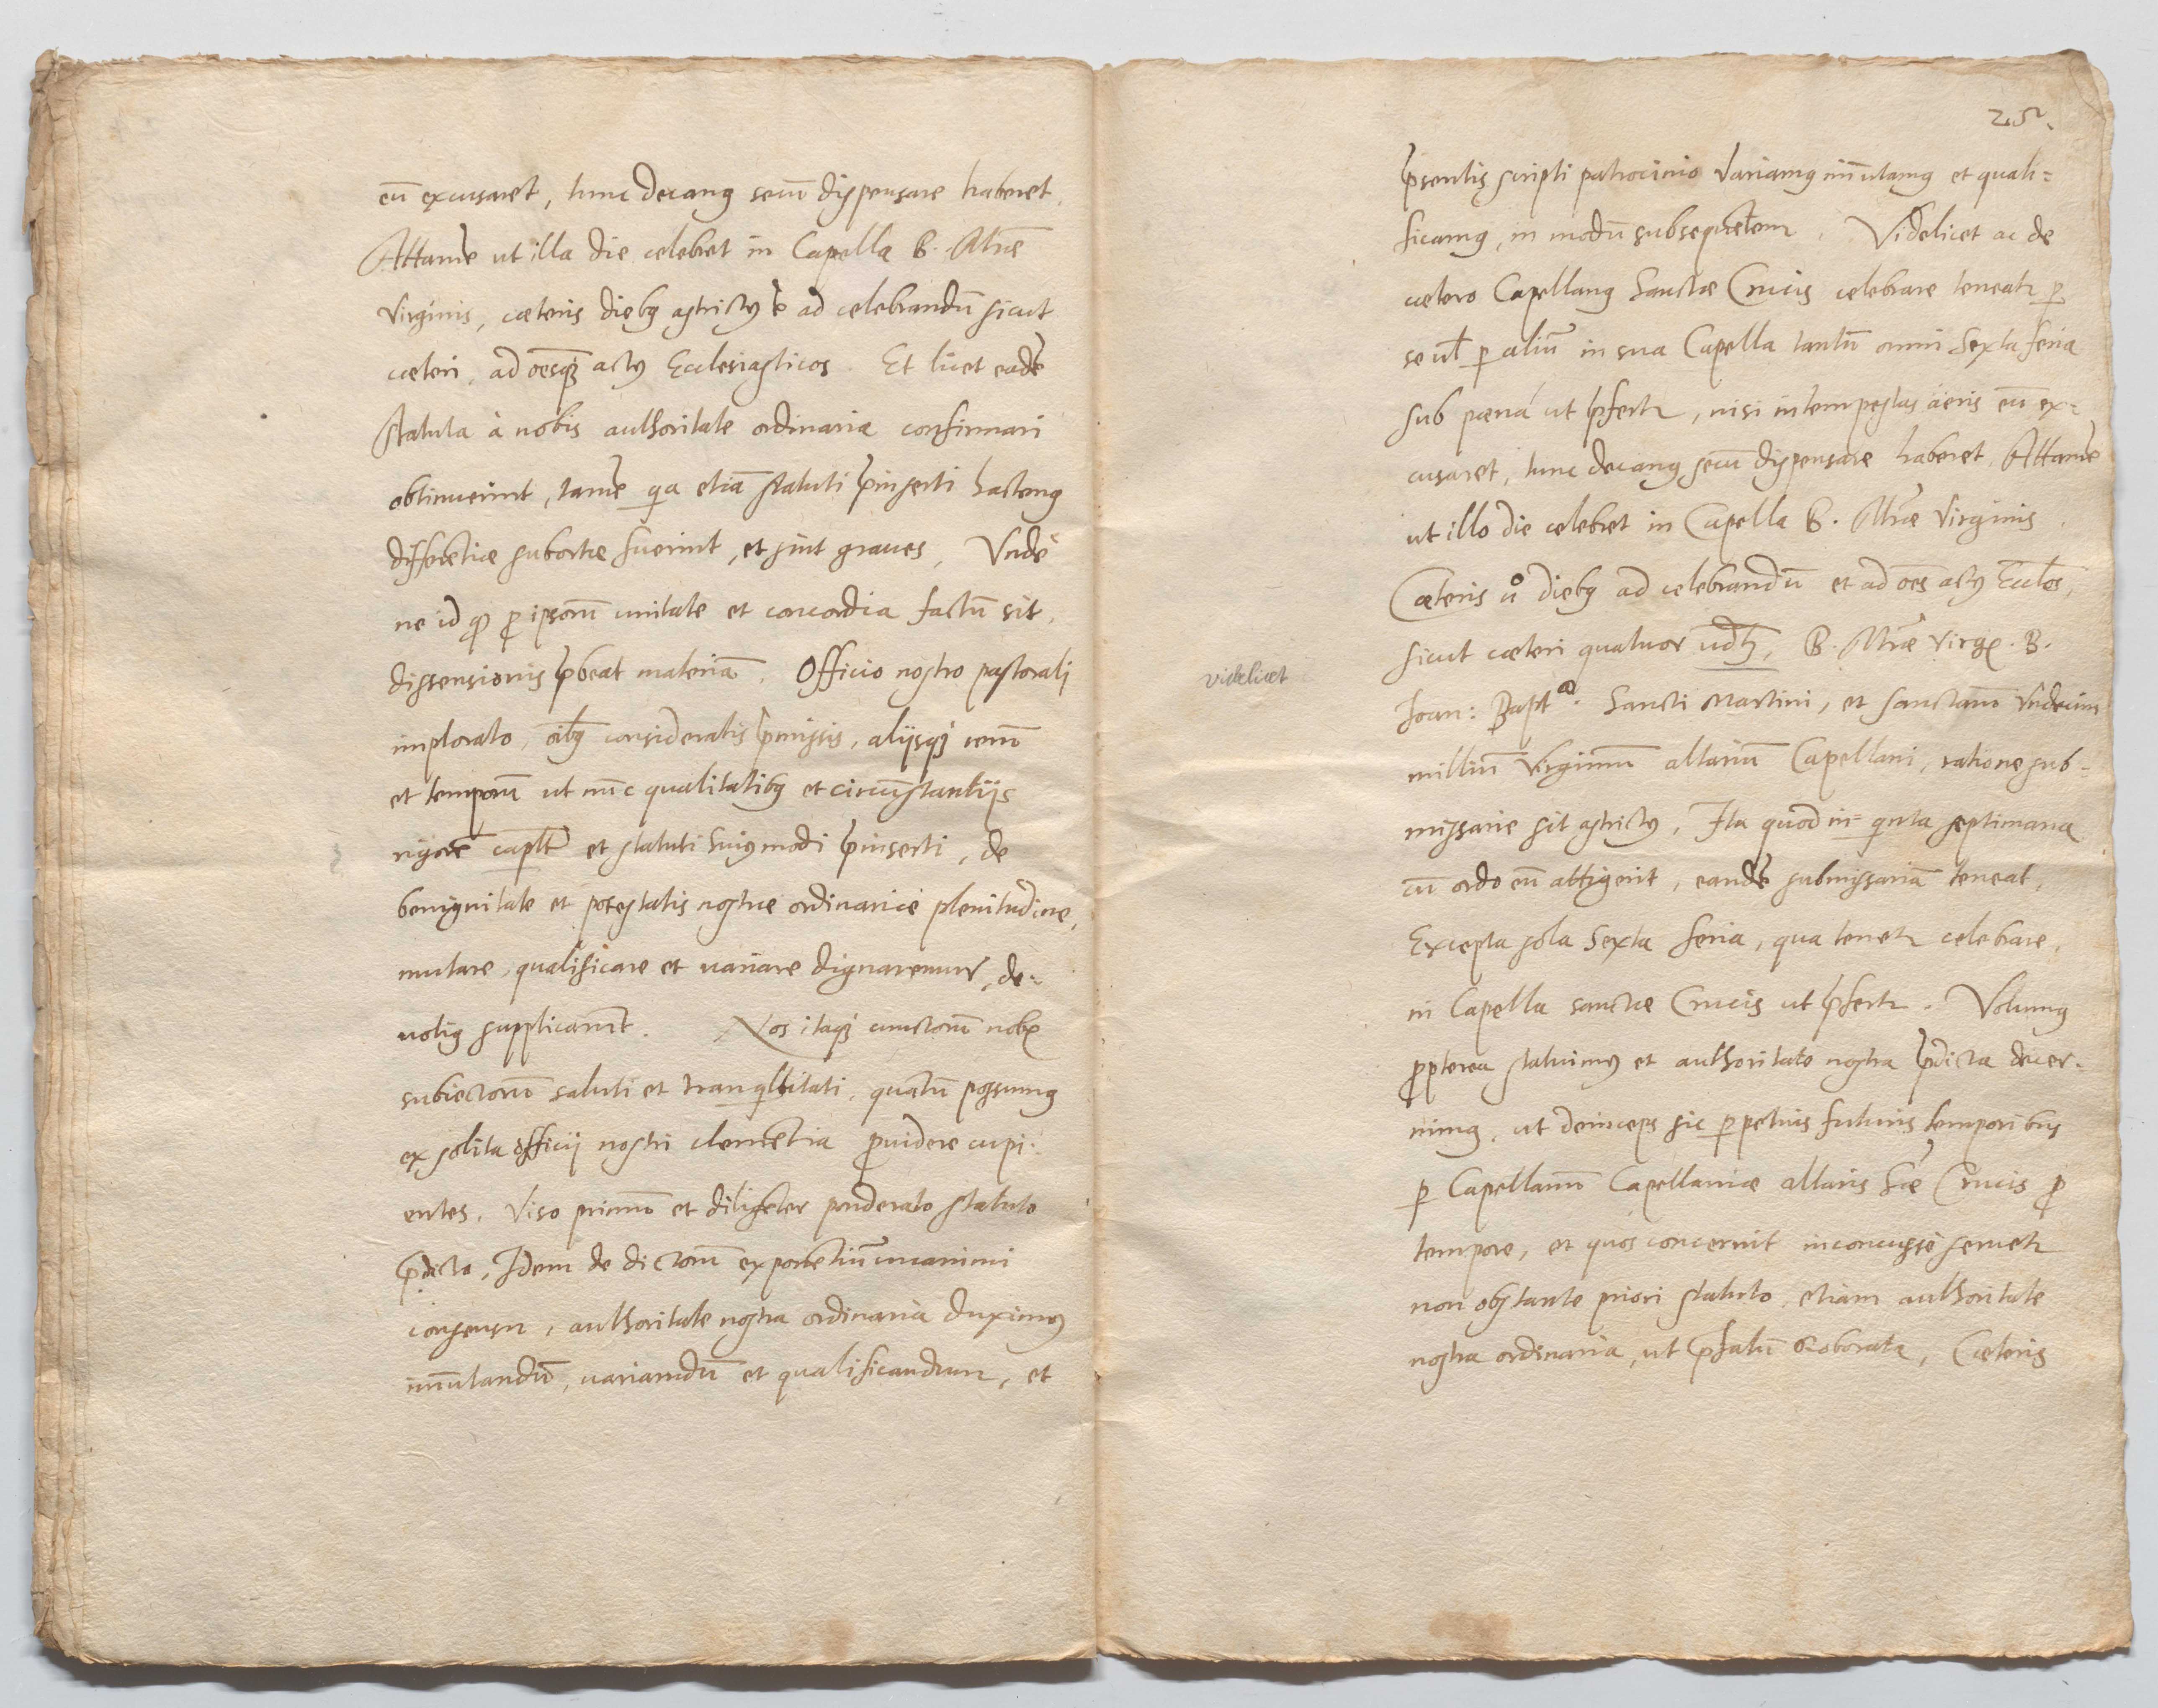 eū excusaret, tunc decanꝰ secū dispensare haberet.
Attamē ut illa die celebret in Capella B. Mriæ
Virginis, cæteris diebꝰ astrictꝰ ē ad celebrandū sicut
cæteri, ad oēsq̃ꝫ actꝰ Ecclesiasticos. Et licet eadē
statuta à nobis authoritate ordinaria confirmari
obtinuerint, tamē qa etiā statuti p̄inserti hactenꝰ
differētiæ subortæ fuerint, et sint graues, Vndè
ne id qꝫ ꝓ ipsorū unitate et concordia factū sit,
dissensionis p̄beat materiā. Officio nostro pastorali
implorato, oībꝰ consideratis p̄missis, alijsqꝫ rerū
et temporū ut nūc qualitatibꝰ et circūstantijs
rigorē capłi et statuti huiꝰmodi p̄inserti, de
benignitate et potestatis nostræ ordinariæ plenitudine,
mutare, qualificare et uariare dignaremur, de-
uotiꝰ supplicarūt. Nos itaqꝫ cunctorū nobꝭ
subiectorū saluti et tranqllitati, quātū possumꝰ
ex solita officij nostri clemētia ꝓuidere cupi-
entes. Viso primū et diligēter ponderato statuto
p̄dicto, Idem de dictorū exponētiū unanimi
consensu, authoritate nostra ordinaria duximꝰ
immutandū, uariandū et qualificandum, et
25.
p̄sentis scripti patrocinio variamꝰ im̄utamꝰ et quali=
ficamꝰ, in modū subsequētem. Videlicet ac de
cætero Capellanꝰ Sanctæ Crucis celebrare teneatr ꝑ
se uł ꝑ aliū in sua Capella tantū omni sexta feria
sub pœnâ ut p̄fertr, nisi intemperies aëris eū ex-
cusaret, tunc decanꝰ secū dispensare haberet, Attamē
ut illo die celebret in Capella B. Mriæ Virginis.
Cæteris uº diebꝰ ad celebrandū et ad oēs actꝰ Eccłos,
sicut cæteri quatuor udtꝫ, B. Mriæ Virgꝭ. B.
videlicet
Joan: Baptæ. Sancti Martini, et Sanctarū Vndecim
milliū Virginū altariū Capellani, ratione sub-
missarie sit astrictꝰ, Ita quod in qnta septimana
cū ordo eū attigerit, eandē submissariā teneat,
Excepta sola sexta feria, qua tenetr celebrare,
in Capella sanctæ Crucis ut p̄fertr. Volumꝰ
ꝓpterea statuimꝰ et authoritate nostra p̄dicta decer-
nimꝰ, ut deinceps sic ꝑpetuis futuris temporibus
ꝑ Capellanū Capellaniæ altaris Stæ Crucis ꝓ
tempore, et quos concernit inconcussè seruetr
non obstante priori statuto, etiam authoritate
nostra ordinaria, ut p̄fatū roborata, Cæteris